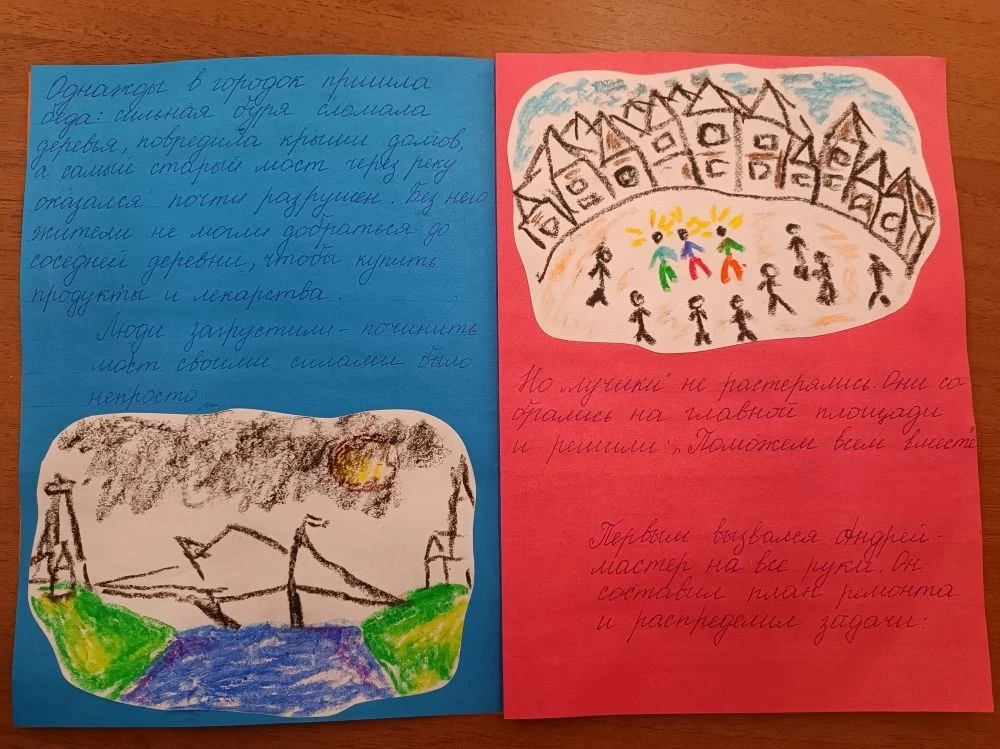 Однажды в городок пришла
беда: сильная буря сломала
деревья, повредила крыши домов,
а самый старый мост через реку
оказался почти разрушен. Без него
жители не могли добраться до
соседней деревни, чтобы купить
продукты и лекарства.
Люди загрустили - починить
мост своими силами было
непросто.
Но „лучики" не растерялись. Они со-
брались на главной площади
и решили: „Поможем всем вместе"
Первым вызвался Андрей -
мастер на все руки. Он
составил план ремонта
и распределил задачи: